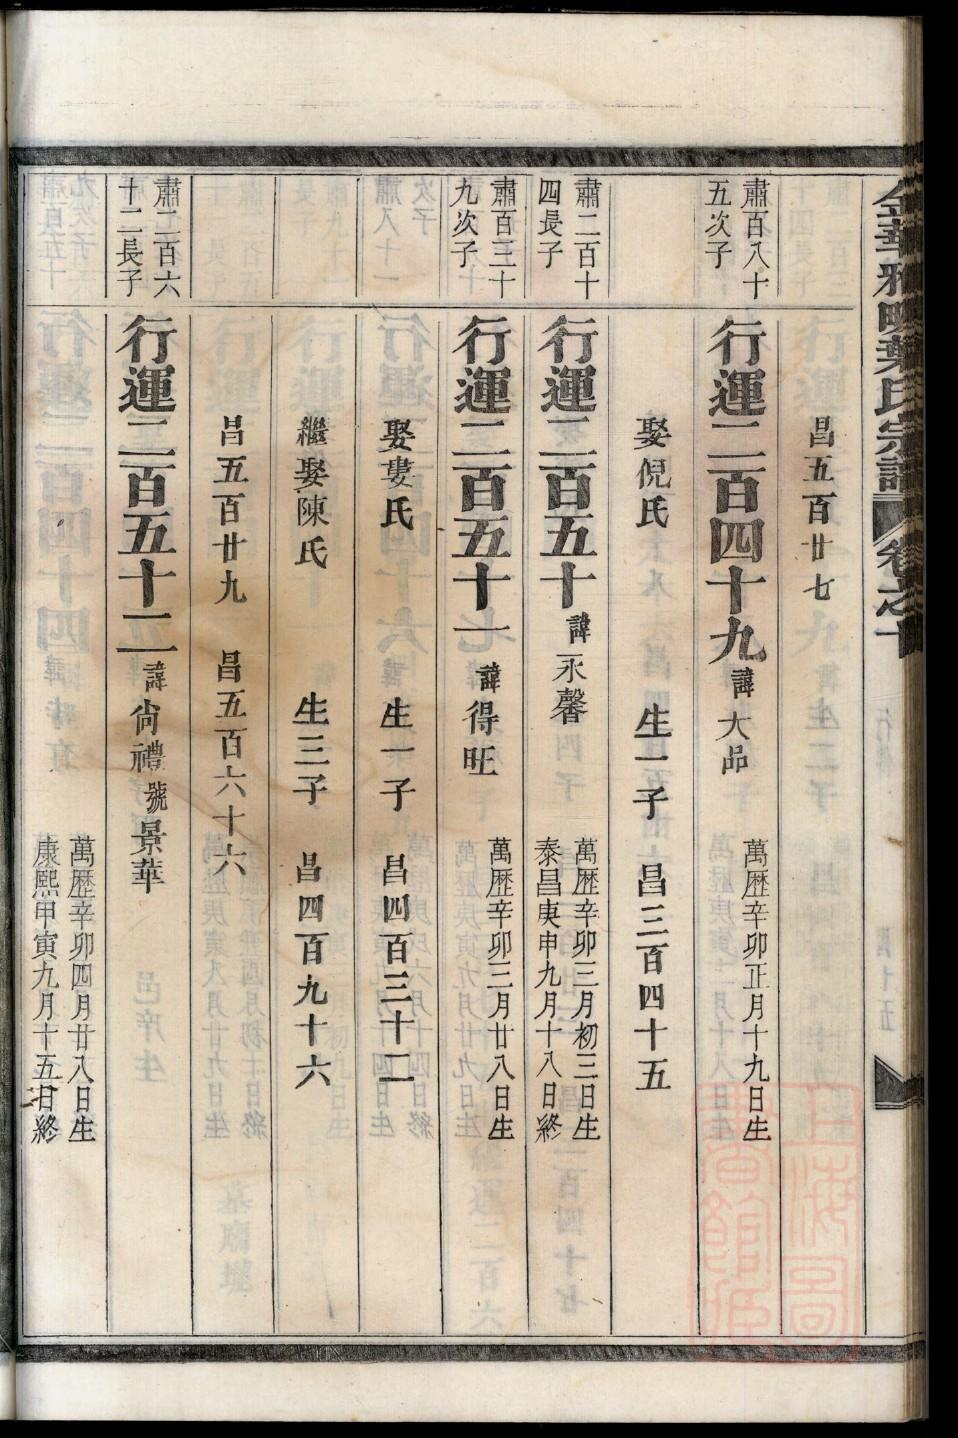 昌五百廿七
肅百八十
五次子
行運二百四十九 諱大昂
萬歷辛卯正月十九日生
娶倪氏 生一子 昌三百四十五
肅二百十
四長子
行運二百五十 諱永馨
萬歷辛卯三月初三日生
泰昌庚申九月十八日終
肅百三十
九次子
行運二百五十一 諱得旺
萬歷辛卯三月廿八日生
娶婁氏 生一子 昌四百三十二
繼娶陳氏 生三子 昌四百九十六
昌五百廿九 昌五百六十六
肅二百六
十二長子
行運二百五十二 諱尚禮 號景華
萬歷辛卯四月廿八日生
康熙甲寅九月十五日終